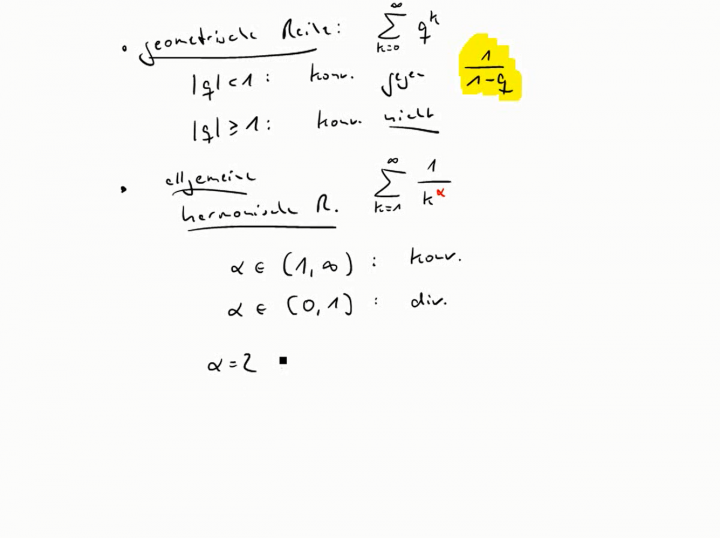 • geometrische Reihe: ∑_{k=0}^{∞} q^k
|q| < 1 : konv. gegen 1/(1-q)
|q| ≥ 1 : konv. nicht
• allgemeine
harmonische R. ∑_{k=1}^{∞} 1/k^α
α ∈ (1, ∞) : konv.
α ∈ (0, 1] : div.
α = 2